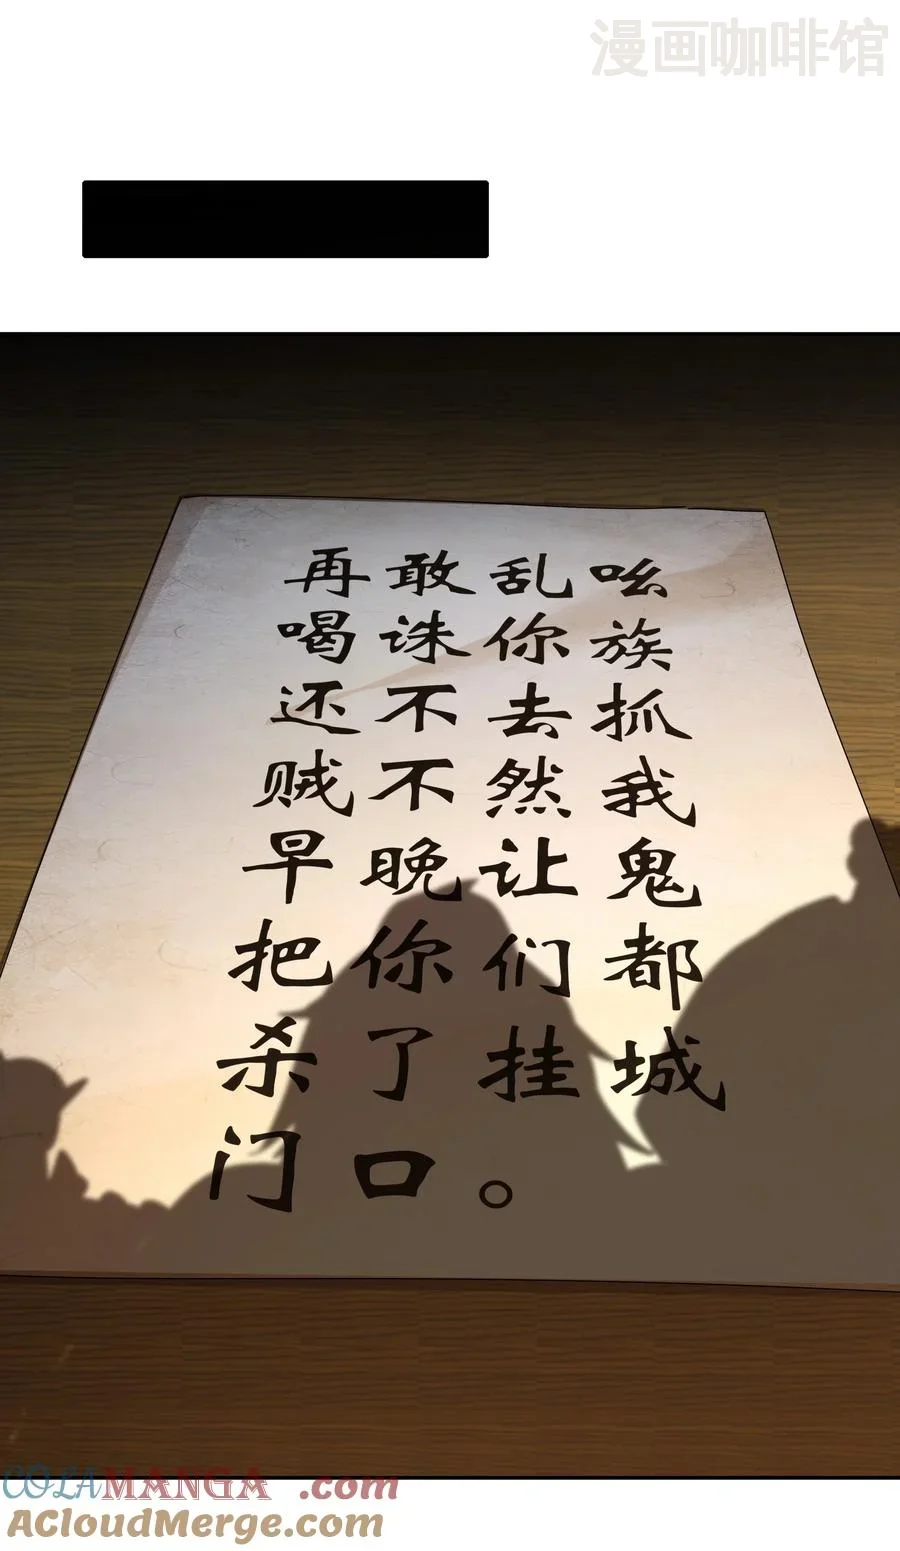 漫画咖啡馆
再敢乱吆
喝诛你族
还不去抓
贼不然我
早晚让鬼
把你们都
杀了挂城
门口。
COLAMANGA.com
AcloudMerge.com